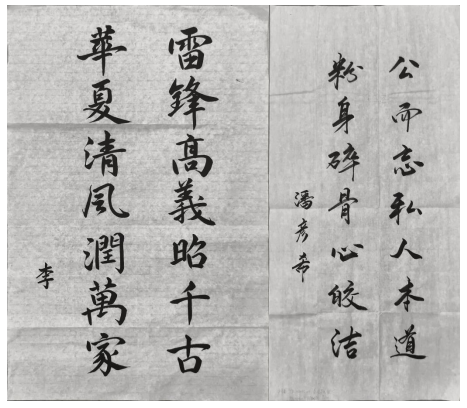 公而忘私人本道
粉身碎骨心皎洁
潘彦希
雷鋒高義昭千古
華夏清风潤萬家
李